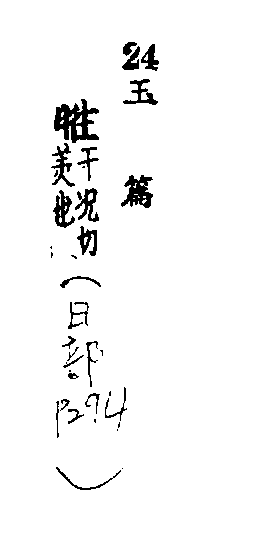 24
玉篇
暀于况切美也
(日部P294)